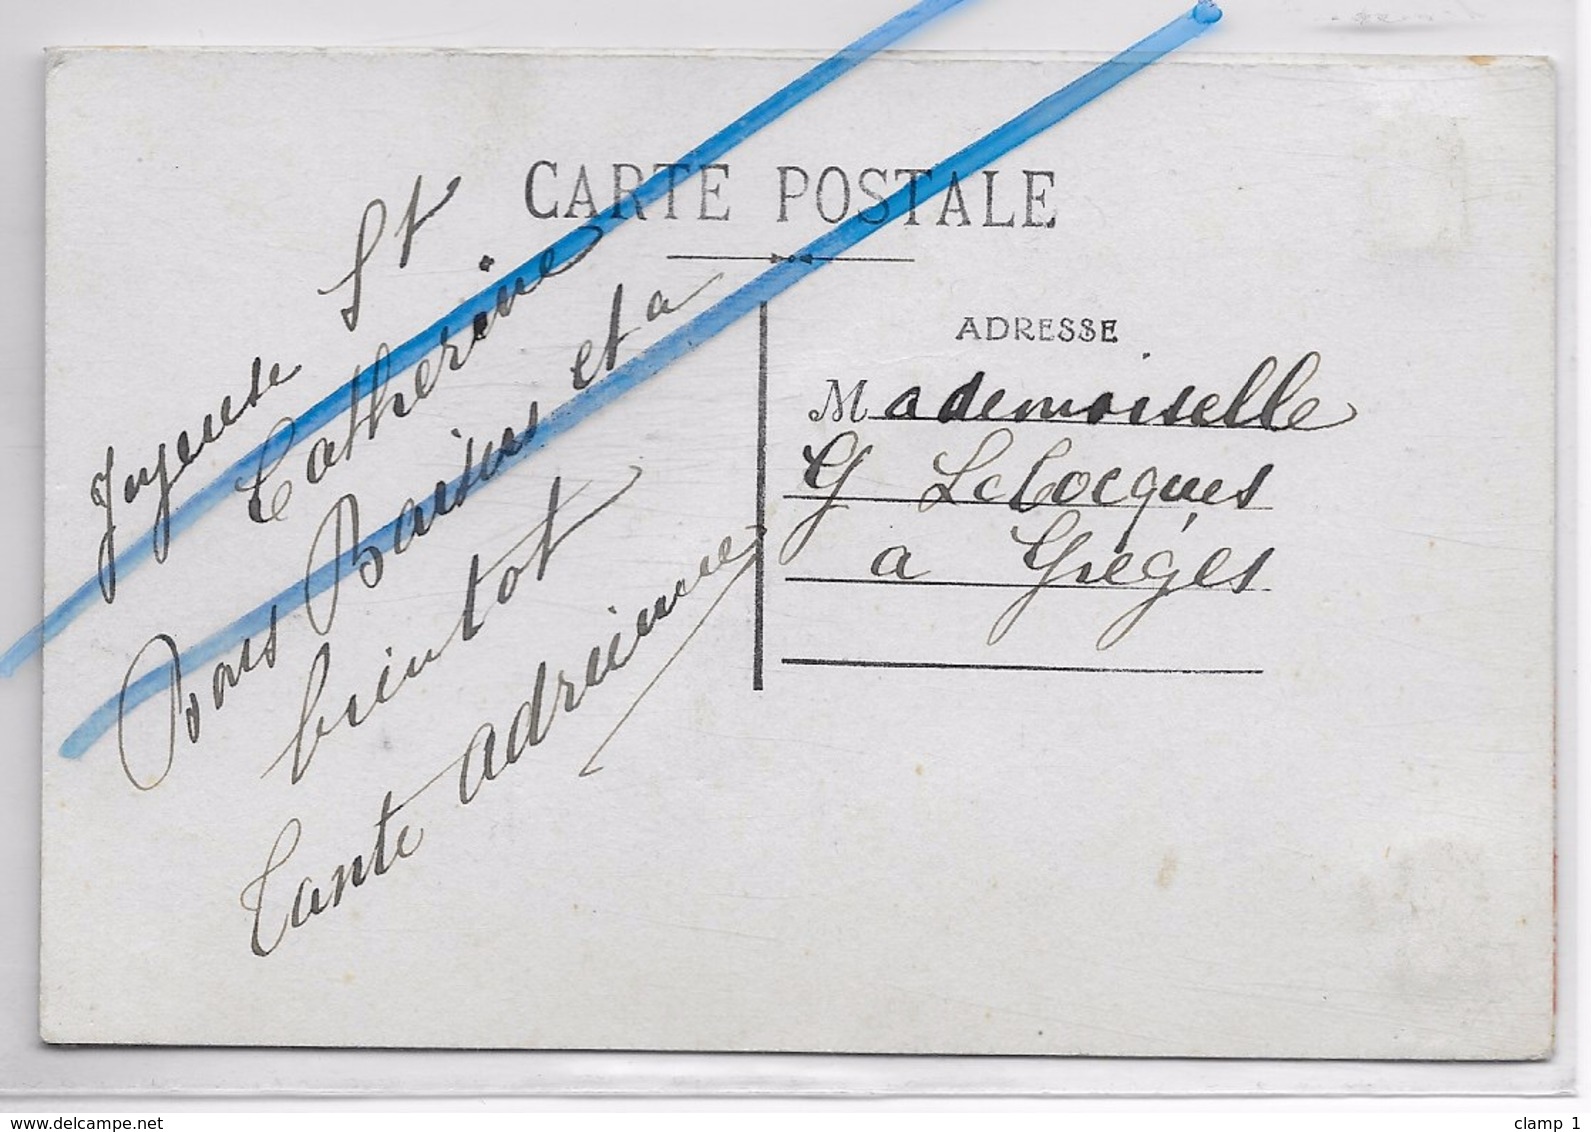 CARTE POSTALE
Joyeuse St
Catherine
Bons Baisers et a
bientot
Tante Adrienne
ADRESSE
Mademoiselle
G LeCocques
a Grèges
www.delcampe.net
clamp 1